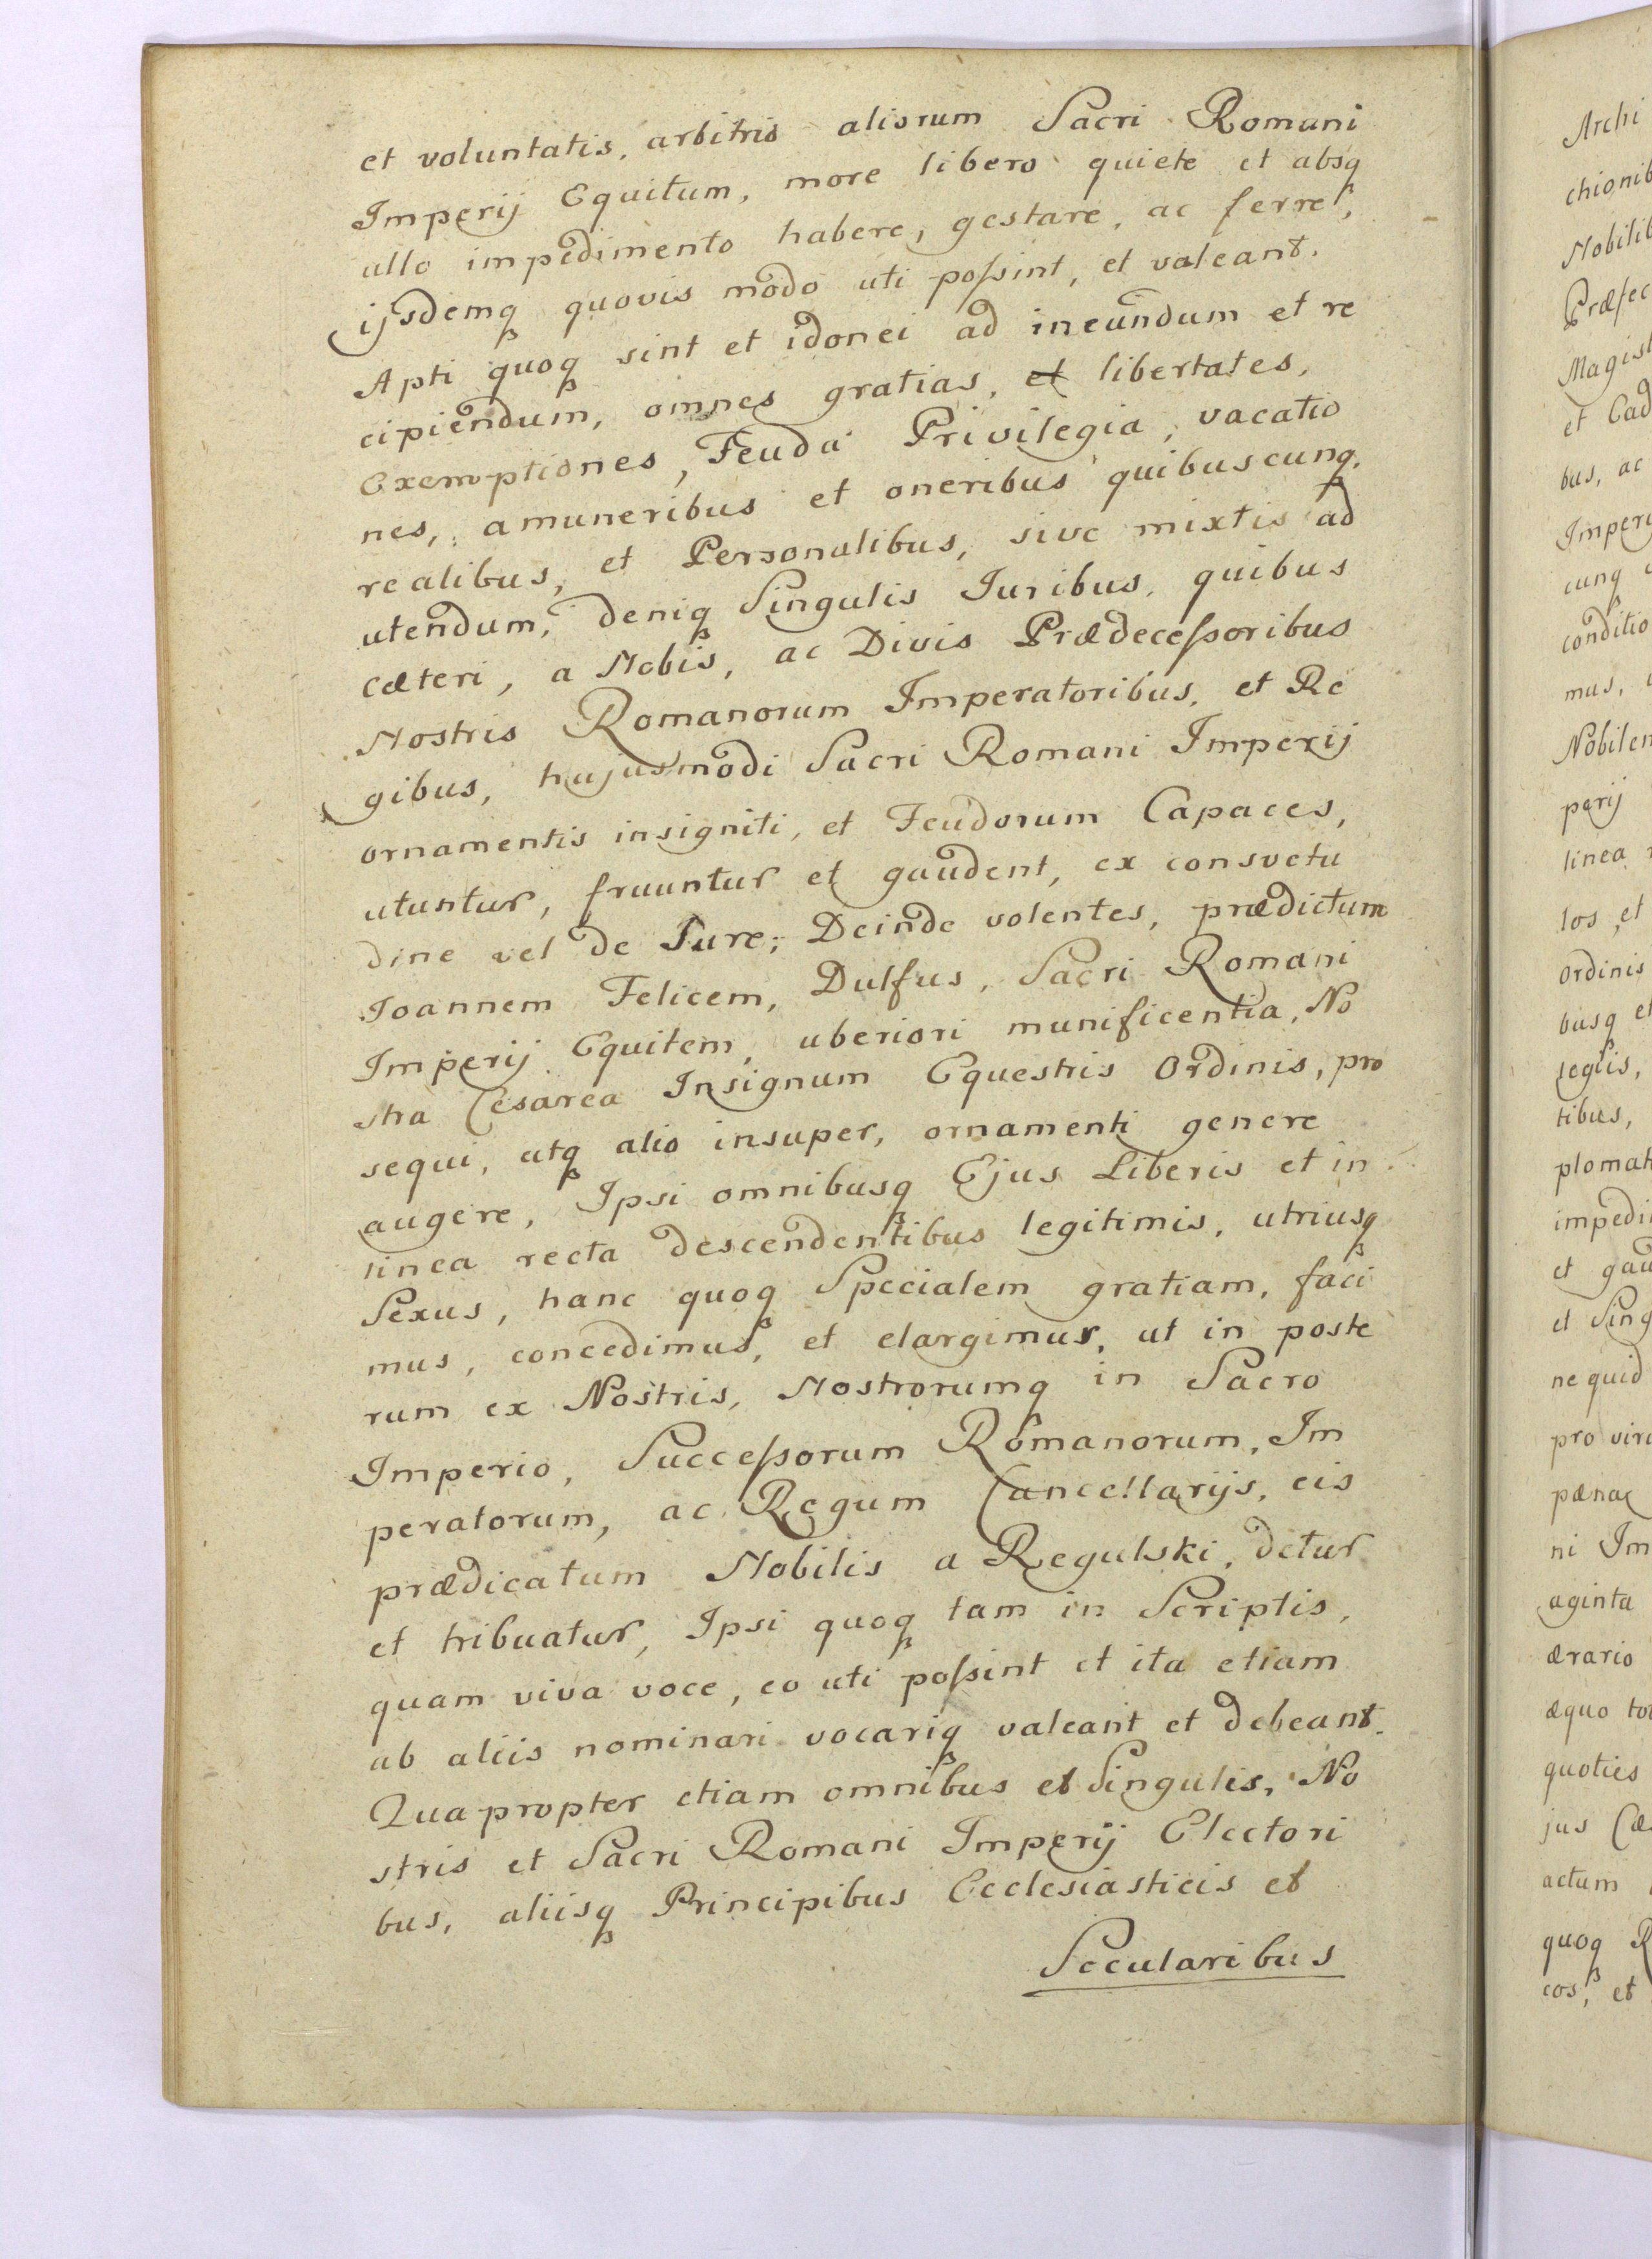 et voluntatis, arbitrio aliorum Sacri Romani
Imperij Equitum, more libero quiete et absq
ullo impedimento habere, gestare, ac ferre,
ijsdemq quovis modo uti possint, et valeant.
Apti quoq sint et idonei ad ineundum et re
cipiendum, omnes gratias, et libertates,
Exemptiones, Feuda Privilegia, vacatio
nes, a muneribus et oneribus quibuscunq
realibus, et Personalibus, sive mixtis ad
utendum, deniq Singulis Juribus, quibus
cæteri, a Nobis, ac Divis Prædecessoribus
Nostris Romanorum Imperatoribus, et Re
gibus, hujusmodi Sacri Romani Imperij
ornamentis insigniti, et Feudorum Capaces,
utuntur, fruuntur et gaudent, ex consvetu
dine vel de Jure; Deinde volentes, prædictum
Joannem Felicem, Dulfus, Sacri Romani
Imperij Equitem, uberiori munificentia, No
stra Cesarea Insignum Equestris Ordinis, pro
sequi, atq alio insuper, ornamenti genere
augere, Ipsi omnibusq Ejus Liberis et in
linea recta descendentibus legitimis, utriusq
Sexus, hanc quoq Specialem gratiam, faci
mus, concedimus, et elargimur, ut in poste
rum ex Nostris, Nostrorumq in Sacro
Imperio, Successorum Romanorum, Im
peratorum, ac Regum Cancellarijs, eis
prædicatum Nobilis a Regulski, detur
et tribuatur, Ipsi quoq tam in Scriptis,
quam viva voce, eo uti possint et ita etiam
ab aliis nominari vocariq valeant et debeant.
Quapropter etiam omnibus et Singulis, No
stris et Sacri Romani Imperij Electori
bus, aliisq Principibus Ecclesiasticis et
Secularibus
Archi
chionib
Nobilib
Præfec
Magist
et Cad
bus, ac
Imperi
cunq
conditio
mus,
Nobilem
perij
linea
los, et
ordinis
busq et
tibus,
plomat
impedi
et gau
et Sing
ne quid
pro viri
pænæ
ni Im
aginta
ærario
æquo to
quoties
jus Cæ
actum
quoq R
cos, et